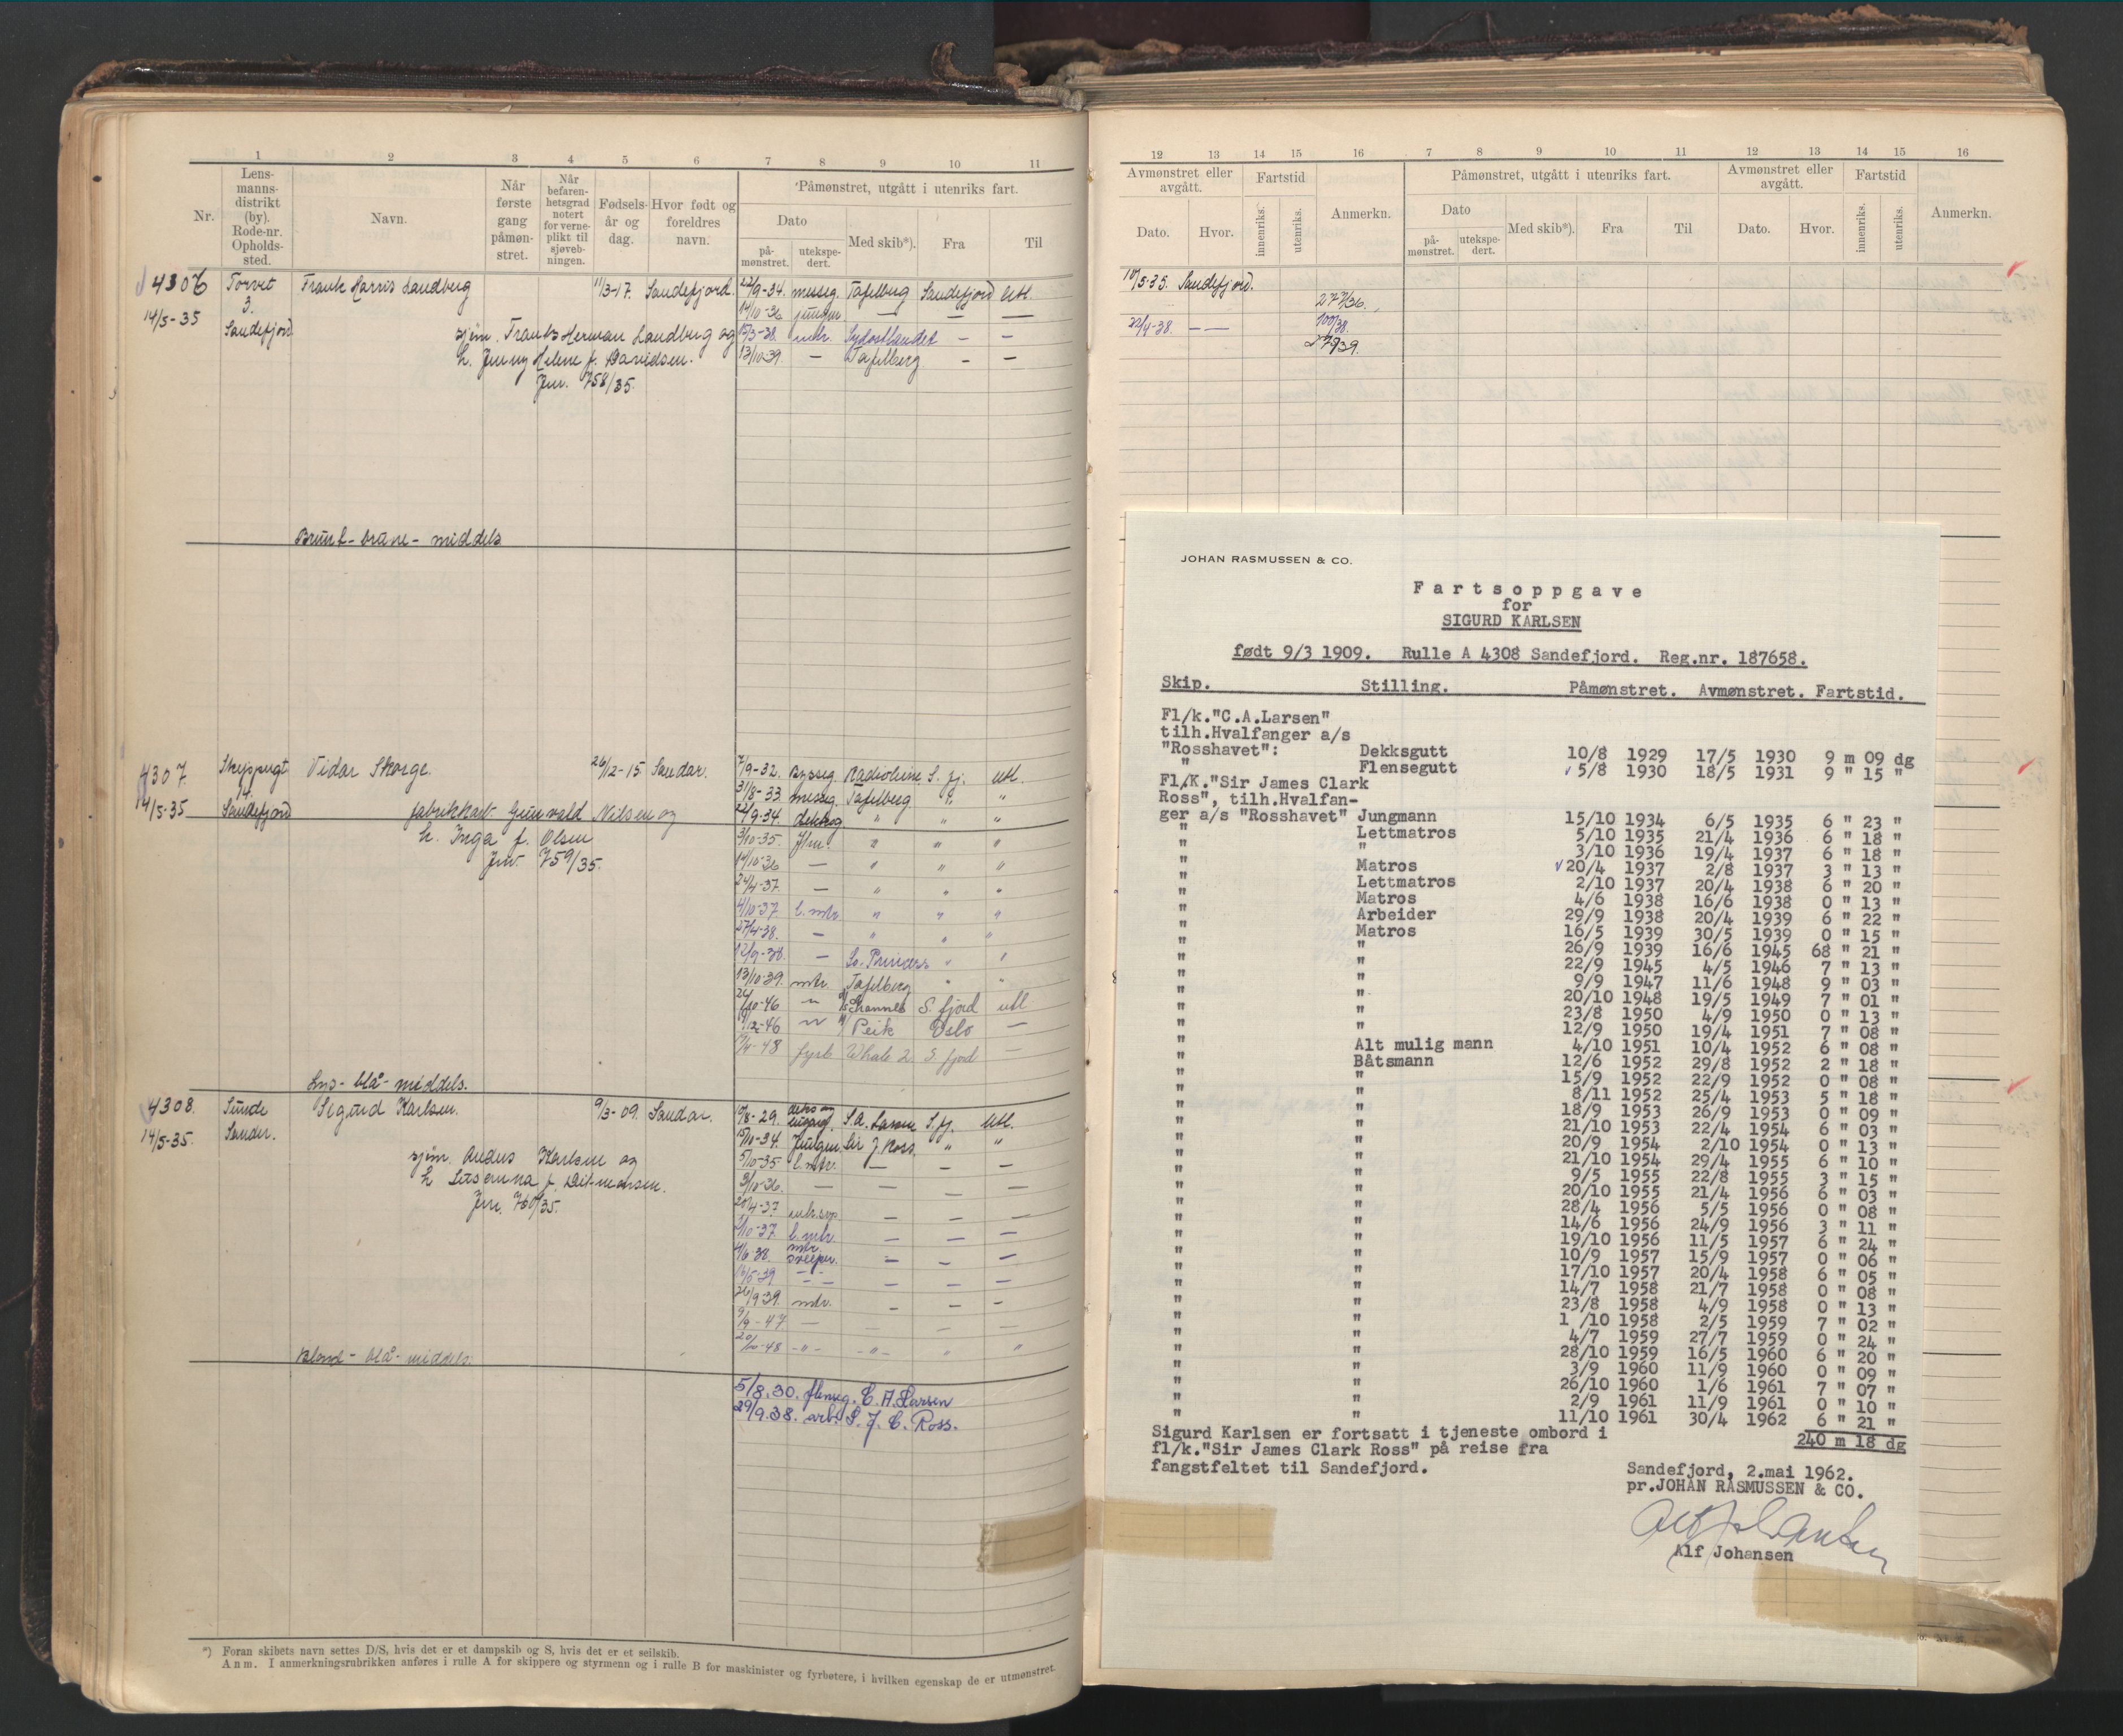 1 2 3 4 5 6 7 8 9 10 11
Nr.
Lens-
manns-
distrikt
(by).
Rode-nr.
Opholds-
sted.
Navn.
Når
første
gang
påmøn-
stret.
Når
befaren-
hetsgrad
notert
for verne-
plikt til
sjøveb-
ningen.
Fødsels-
år og
dag.
Hvor født og
foreldres
navn.
Påmønstret, utgått i utenriks fart.
Dato
på-
mønstret.
utekspe-
dert.
Med skib*).
Fra
Til
4306 Torvet Frank Harris Sandberg 11/3-17. Sandefjord. 22/9-34. messeg. Tafelberg Sandefjord Utl.
3. 14/10-36 jungm. — — —
14/5-35 Sandefjord sjøm. Frantz Herman Sandberg og 15/3-38. mtr. Sydostlandet — —
h. Jenny Helene f. Davidsen. 13/10-39 — Tafelberg — —
Jnr. 758/35.
Brunt - brune - middels
4307. Vidar Skorge. 26/12-15. Sandar. 7/9-32. byssg. Radioleine S. fj. Utl.
31/8-33 messeg. Tafelberg " "
14/5-35 Sandefjord fabrikkarb. Gunvald Nilsen og 22/9-34. dekksg. " " "
h. Inga f. Olsen 3/10-35. Jfm. " " "
Jnr. 759/35. 14/10-36 — " " "
24/4-37. — " " "
4/10-37. l. mtr. " " "
27/4-38. — " " "
12/9-38. — So. Princess " "
13/10-39. mtr. Tafelberg " "
26/10-46 " S. fjord utl
/12-46 " Peik Oslo —
/4-48 fyrb Whale 2 S. fjord —
Lys - blå - middels.
4308. Sunde Sigurd Karlsen. 9/3-09. Sandar. 10/8-29. S.A. Larsen S. fj. Utl.
14/5-35. Sandar. 15/10-34. Jungm. Sir J. Ross. " "
sjøm. Anders Karlsen og 5/10-35 l. mtr. — — —
3/10-36. — — — —
Jnr. 760/35. 20/4-37. — — —
2/10-37. l. mtr. — — —
4/6-38. mtr. — — —
16/5-39 — — — —
26/9 39. mtr. — — —
9/9-47. — — — —
20/10-48 - " - - " - " "
Blond - blå - middels.
5/8.30. flenseg. C. A. Larsen
29/9.38. arb. S. J. C. Ross.
*) Foran skibets navn settes D/S, hvis det er et dampskib og S, hvis det er et seilskib.
Anm. I anmerkningsrubrikken anføres i rulle A for skippere og styrmenn og i rulle B for maskinister og fyrbøtere, i hvilken egenskap de er utmønstret.
12 13 14 15 16 7 8 9 10 11 12 13 14 15 16
Avmønstret eller
avgått.
Dato.
Hvor.
Fartstid
innenriks.
utenriks.
Anmerkn.
Påmønstret, utgått i utenriks fart.
Dato
på-
mønstret.
utekspe-
dert.
Med skib*).
Fra
Til
Avmønstret eller
avgått.
Dato.
Hvor.
Fartstid
innenriks.
utenriks.
Anmerkn.
10/5-35. Sandefjord.
22/4-38. — —
JOHAN RASMUSSEN & CO.
Fartsoppgave
for
SIGURD KARLSEN
født 9/3 1909. Rulle A 4308 Sandefjord. Reg.nr. 187658.
Skip. Stilling. Påmønstret. Avmønstret. Fartstid.
Fl/k."C.A.Larsen"
tilh.Hvalfanger a/s
"Rosshavet": Dekksgutt 10/8 1929 17/5 1930 9 m 09 dg
" Flensegutt 5/8 1930 18/5 1931 9 " 15 "
Fl/K."Sir James Clark
Ross", tilh.Hvalfan-
ger a/s "Rosshavet" Jungmann 15/10 1934 6/5 1935 6 " 23 "
" Lettmatros 5/10 1935 21/4 1936 6 " 18 "
" " 3/10 1936 19/4 1937 6 " 18 "
" Matros 20/4 1937 2/8 1937 3 " 13 "
" Lettmatros 2/10 1937 20/4 1938 6 " 20 "
" Matros 4/6 1938 16/6 1938 0 " 13 "
" Arbeider 29/9 1938 20/4 1939 6 " 22 "
" Matros 16/5 1939 30/5 1939 0 " 15 "
" " 26/9 1939 16/6 1945 68 " 21 "
" " 22/9 1945 4/5 1946 7 " 13 "
" " 9/9 1947 11/6 1948 9 " 03 "
" " 20/10 1948 19/5 1949 7 " 01 "
" " 23/8 1950 4/9 1950 0 " 13 "
" " 12/9 1950 19/4 1951 7 " 08 "
" Alt mulig mann 4/10 1951 10/4 1952 6 " 08 "
" Båtsmann 12/6 1952 29/8 1952 2 " 18 "
" " 15/9 1952 22/9 1952 0 " 08 "
" " 8/11 1952 25/4 1953 5 " 18 "
" " 18/9 1953 26/9 1953 0 " 09 "
" " 21/10 1953 22/4 1954 6 " 03 "
" " 20/9 1954 2/10 1954 0 " 13 "
" " 21/10 1954 29/4 1955 6 " 10 "
" " 9/5 1955 22/8 1955 3 " 15 "
" " 20/10 1955 21/4 1956 6 " 03 "
" " 28/4 1956 5/5 1956 0 " 08 "
" " 14/6 1956 24/9 1956 3 " 11 "
" " 19/10 1956 11/5 1957 6 " 24 "
" " 10/9 1957 15/9 1957 0 " 06 "
" " 17/10 1957 20/4 1958 6 " 05 "
" " 14/7 1958 21/7 1958 0 " 08 "
" " 23/8 1958 4/9 1958 0 " 13 "
" " 1 /10 1958 2/5 1959 7 " 02 "
" " 4/7 1959 27/7 1959 0 " 24 "
" " 28/10 1959 16/5 1960 6 " 20 "
" " 3/9 1960 11/9 1960 0 " 09 "
" " 26/10 1960 1/6 1961 7 " 07 "
" " 2/9 1961 11/9 1961 0 " 10 "
" " 11/10 1961 30/4 1962 6 " 21 "
240 m 18 dg
Sigurd Karlsen er fortsatt i tjeneste ombord i
fl/k."Sir James Clark Ross" på reise fra
fangstfeltet til Sandefjord.
Sandefjord, 2.mai 1962.
pr.JOHAN RASMUSSEN & CO.
Alf Johansen